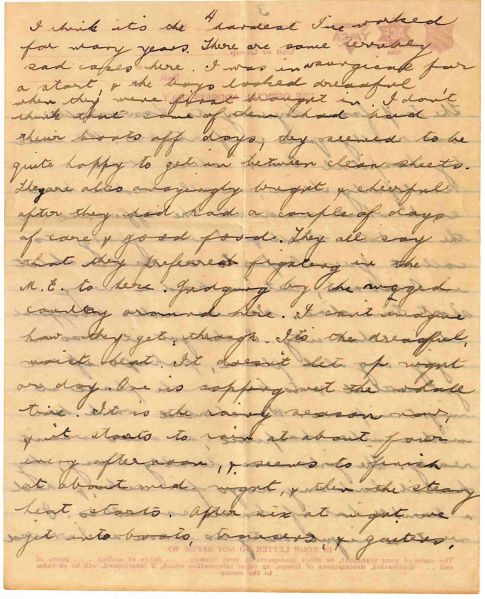 4
I think it's the hardest I've worked
for many years. There are some terribly
sad cases here. I was in surgical for
a start, & the boys looked dreadful
when they were first brought in. I don't
think that some of them had had
their boots off days, they seemed to be
quite happy to get in between clean sheets.
They are also amazingly bright & cheerful
after they had had a couple of days
of care & good food. They all say
that they preferred fighting in the
M.E. to here. Judging by the rugged
country around here. I can't imagine
how they get through. It's the dreadful,
moist heat. It doesn't let up night
or day. One is sopping wet the whole
time. It is the rainy season now,
& it starts to rain at about four
every afternoon, & seems to finish
at about mid night, & then the steamy
heat starts. After six at night we
get into boots, trousers, & gaiters,
IN YOUR LETTER DO NOT REFER TO